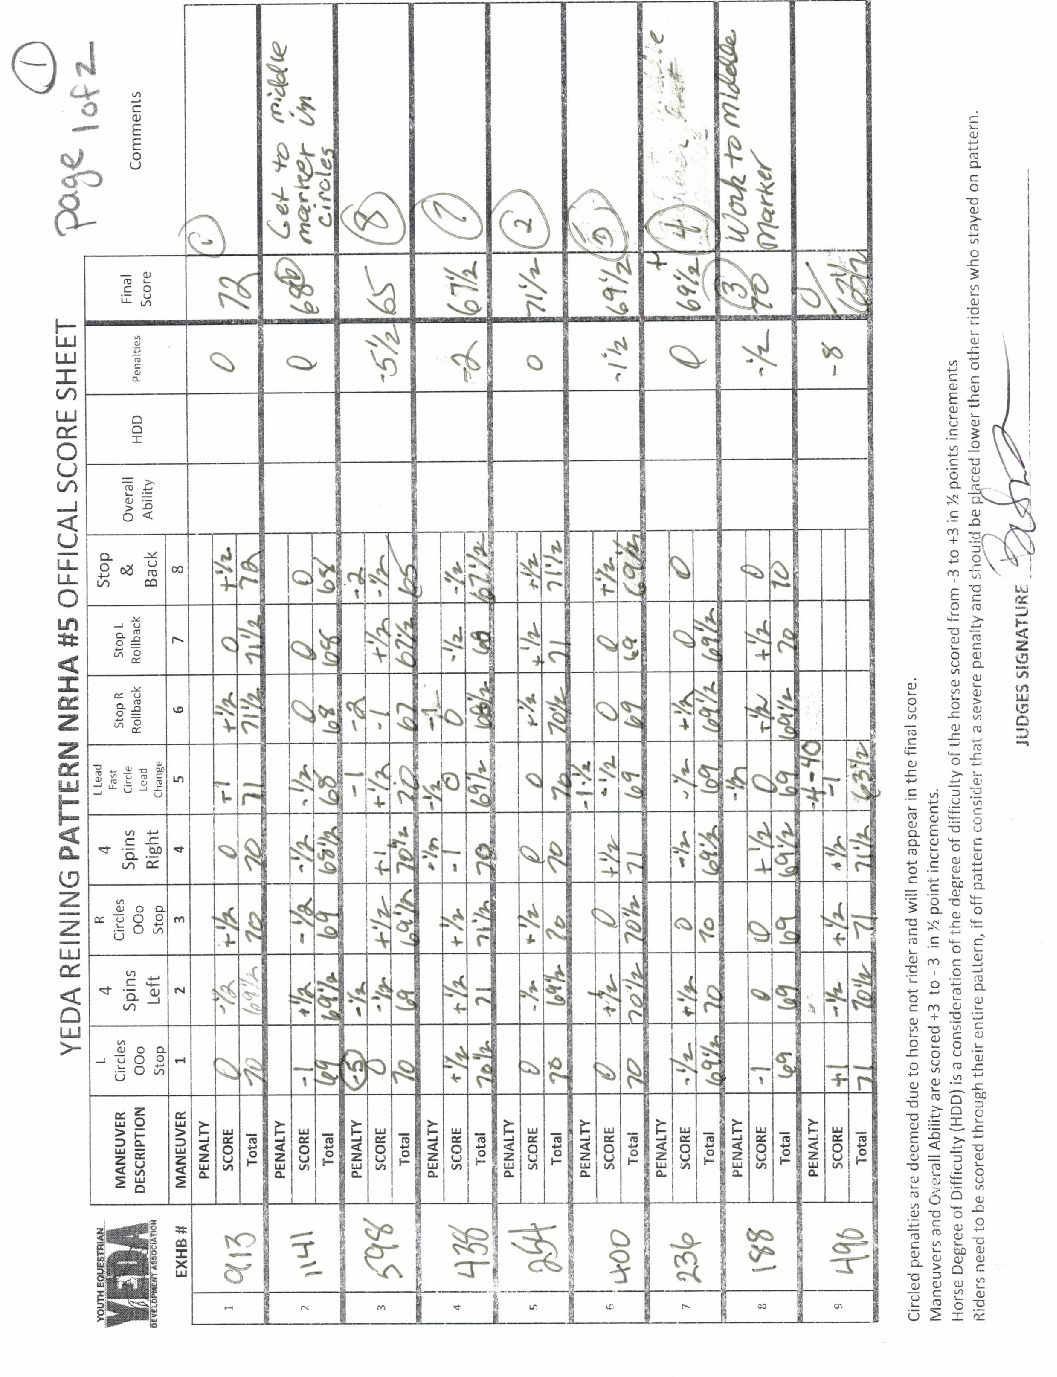 Page 1 of 2
1
YEDA REINING PATTERN NRHA #5 OFFICAL SCORE SHEET
YOUTH EQUESTRIAN
YEDA
DEVELOPMENT ASSOCIATION
MANEUVER DESCRIPTION L Circles OOo Stop 4 Spins Left R Circles OOo Stop 4 Spins Right L Lead Fast Circle Lead Change Stop R Rollback Stop L Rollback Stop & Back Overall Ability HDD Penalties Final Score Comments
EXHB # MANEUVER 1 2 3 4 5 6 7 8
1 913
PENALTY
SCORE 0 -½ +½ 0 +1 +½ 0 +½ 0 72 1
Total 70 69½ 70 70 71 71½ 71½ 72
2 1141
PENALTY
SCORE -1 +½ -½ -½ -½ 0 0 0 0 68 6 Get to middle marker in circles
Total 69 69½ 69 68½ 68 68 68 68
3 598
PENALTY -5 -½ -1 -2 -2
SCORE 0 -½ +½ +1 +½ -1 +½ -½ -5½ 65 8
Total 70 69 69½ 70½ 70 67 67½ 65
4 438
PENALTY -½ -½ -1
SCORE +½ +½ +½ -1 0 0 -½ -½ -2 67½ 7
Total 70½ 71 71½ 70 69½ 68½ 68 67½
5 254
PENALTY
SCORE 0 -½ +½ 0 0 +½ +½ +½ 0 71½ 2
Total 70 69½ 70 70 70 70½ 71 71½
6 400
PENALTY -1½
SCORE 0 +½ 0 +½ -½ 0 0 +½ -1½ 69½
Total 70 70½ 70½ 71 69 69 69 69½
7 236
PENALTY
SCORE -½ +½ 0 -½ -½ +½ 0 0 0 69½ + 4
Total 69½ 70 70 69½ 69 69½ 69½
8 188
PENALTY -½
SCORE -1 0 0 +½ 0 +½ +½ 0 -½ 70 3 Work to middle Marker
Total 69 69 69 69½ 69 69½ 70 70
9 490
PENALTY -4 -4
SCORE +1 -½ +½ +½ -1 -8
Total 71 70½ 71 71½ 63½
Circled penalties are deemed due to horse not rider and will not appear in the final score.
Maneuvers and Overall Ability are scored +3 to - 3 in ½ point increments.
Horse Degree of Difficulty (HDD) is a consideration of the degree of difficulty of the horse scored from -3 to +3 in ½ points increments
Riders need to be scored through their entire pattern, if off pattern consider that a severe penalty and should be placed lower then other riders who stayed on pattern.
JUDGES SIGNATURE